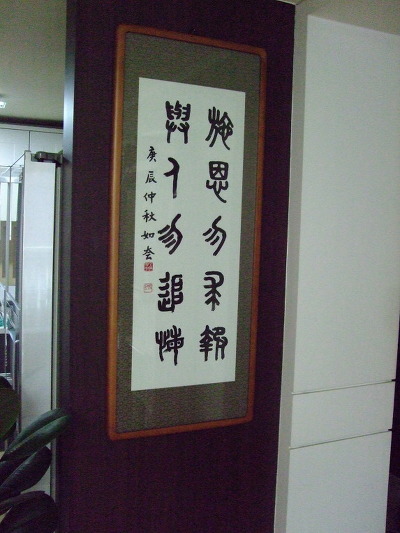 施恩勿求報
與人勿追悔
庚辰仲秋如岺